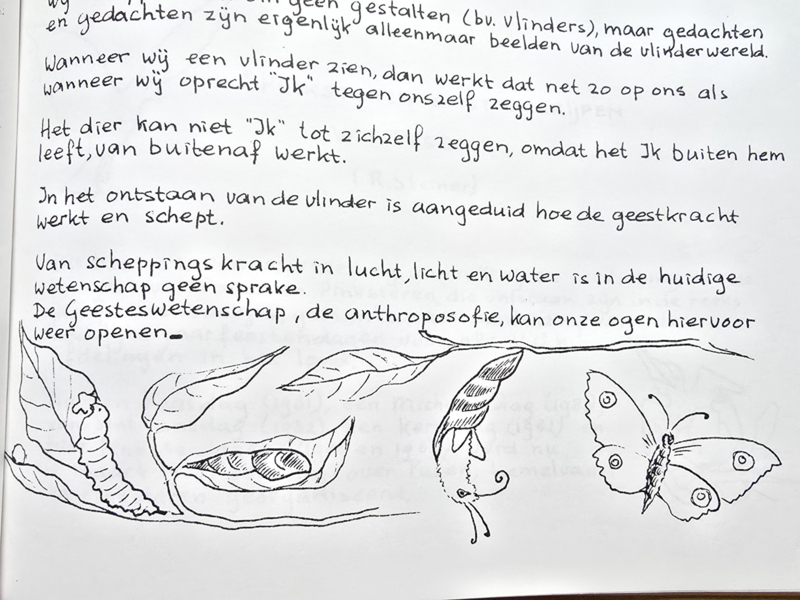 geen gestalten (bv. vlinders), maar gedachten
en gedachten zijn eigenlijk alleenmaar beelden van de vlinderwereld.
Wanneer wij een vlinder zien, dan werkt dat net zo op ons als
wanneer wij oprecht "Ik" tegen onszelf zeggen.
Het dier kan niet "Ik" tot zichzelf zeggen, omdat het Ik buiten hem
leeft, van buitenaf werkt.
In het ontstaan van de vlinder is aangeduid hoe de geestkracht
werkt en schept.
Van scheppingskracht in lucht, licht en water is in de huidige
wetenschap geen sprake.
De Geesteswetenschap, de anthroposofie, kan onze ogen hiervoor
weer openen_